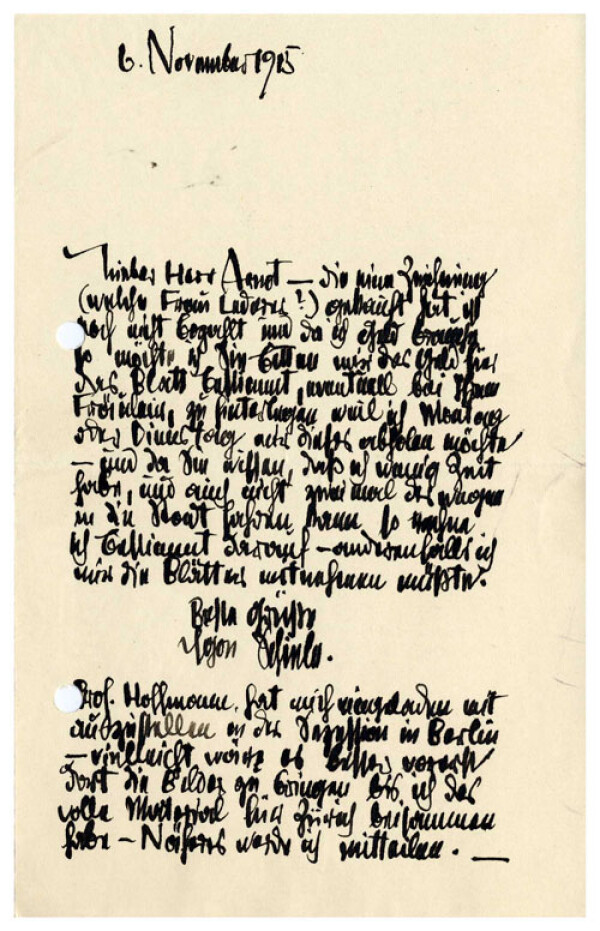 6. November 1915
Lieber Herr Arnot – die eine Zeichnung
(welche Frau Lederer?) gekauft hat ist
noch nicht bezahlt und da ich Geld brauche
so möchte ich Sie bitten mir das Geld für
das Blatt bestimmt, eventuell bei Ihrem
Fräulein, zu hinterlegen weil ich Montag
oder Dienstag mir dieses abholen möchte
– und da Sie wissen, daß ich wenig Zeit
habe, und auch nicht zweimal deswegen
in die Stadt fahren kann so rechne
ich bestimmt darauf – anderenfalls ich
mir die Blätter mitnehmen müßte.
Beste Grüße
Egon Schiele.
Prof. Hoffmann, hat mich eingeladen mit
auszustellen in der Sezession in Berlin
– vielleicht wäre es besser vorerst
dort die Bilder zu bringen bis ich das
volle Material für Zürich beisammen
habe – Näheres werde ich mitteilen. –